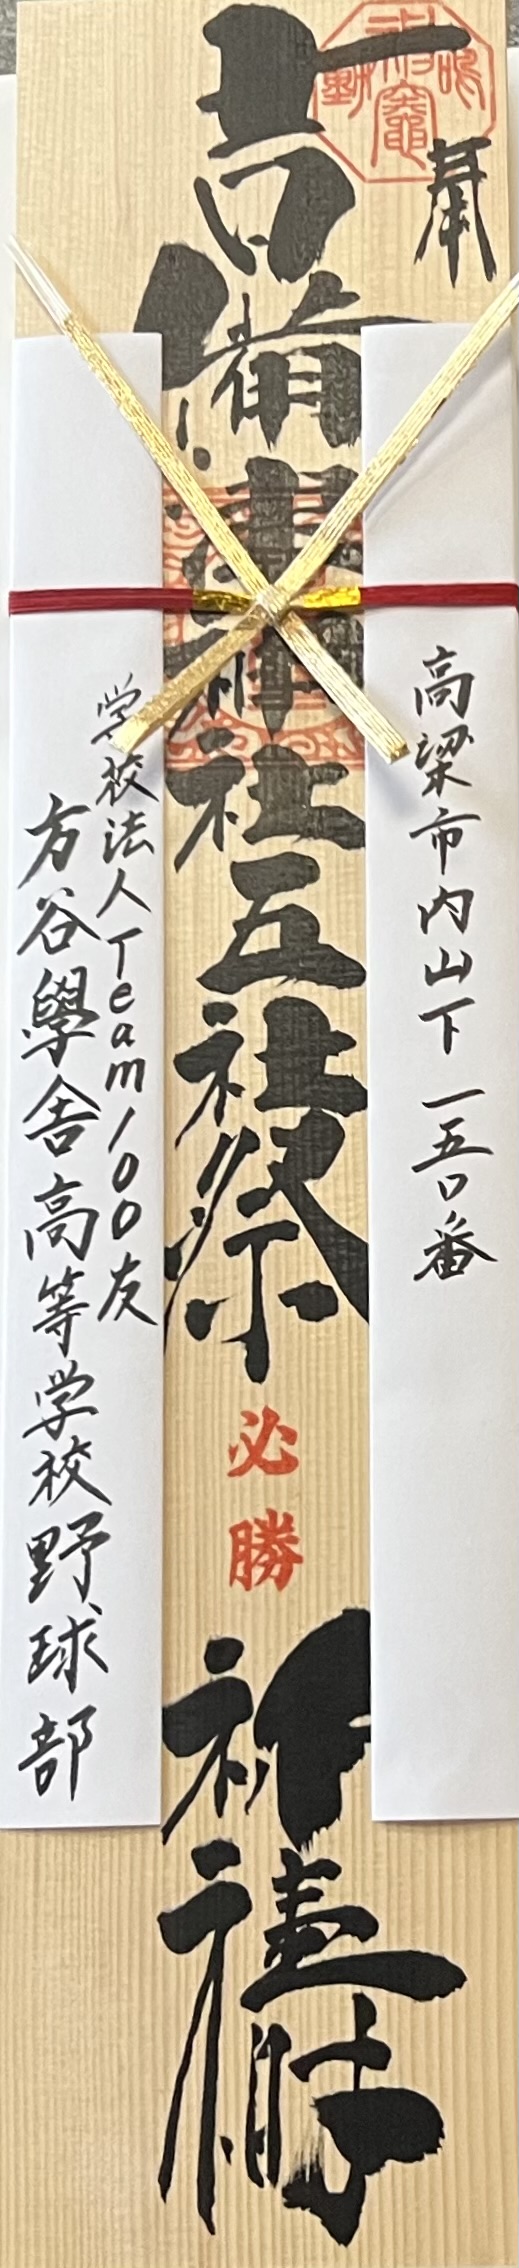 奉
高梁市内山下一五〇番
吉備津神社五社祭 必勝 祈禱
学校法人Team100友
方谷學舎高等学校野球部